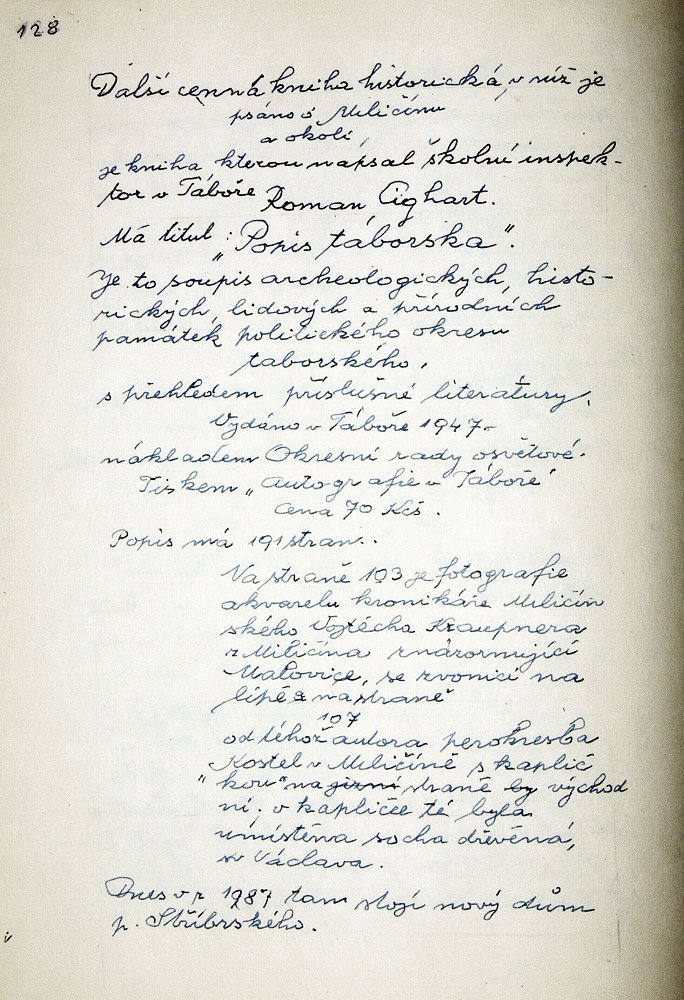 128
Další cenná kniha historická, v níž je
psáno o Miličínu
a okolí,
je kniha, kterou napsal školní inspek-
tor v Táboře Roman Cighart.
Má titul: „Popis táborska".
Je to soupis archeologických, histo-
rických, lidových a přírodních
památek politického okresu
taborského,
s přehledem příslušné literatury.
Vydáno v Táboře 1947.-
nákladem Okresní rady osvětové.
Tiskem „Autografie v Táboře"
Cena 70 Kčs.
Popis má 191 stran..
Na straně 103 je fotografie
akvarelu kronikáře Miličín
ského Vojtěcha Kraupnera
z Miličína znázorňující
Maťovice, se zvonicí na
lípě a na straně
107
od téhož autora perokresba
Kostel v Miličíně s kaplič
"kou" na jižní straně by východ
ní. v kapličce té byla
umístěna socha dřevěná,
sv Václava.
Dnes v r 1987 tam stojí nový dům
p. Stříbrského.